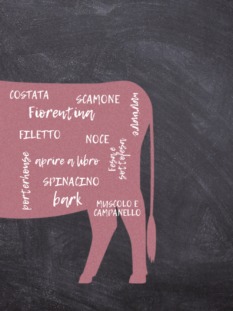 COSTATA
SCAMONE
Fiorentina
FILETTO
NOCE
aprire a libro
SPINACINO
bark
MUSCOLO E
CAMPANELLO
porterhouse
Fesa e
sottofesa